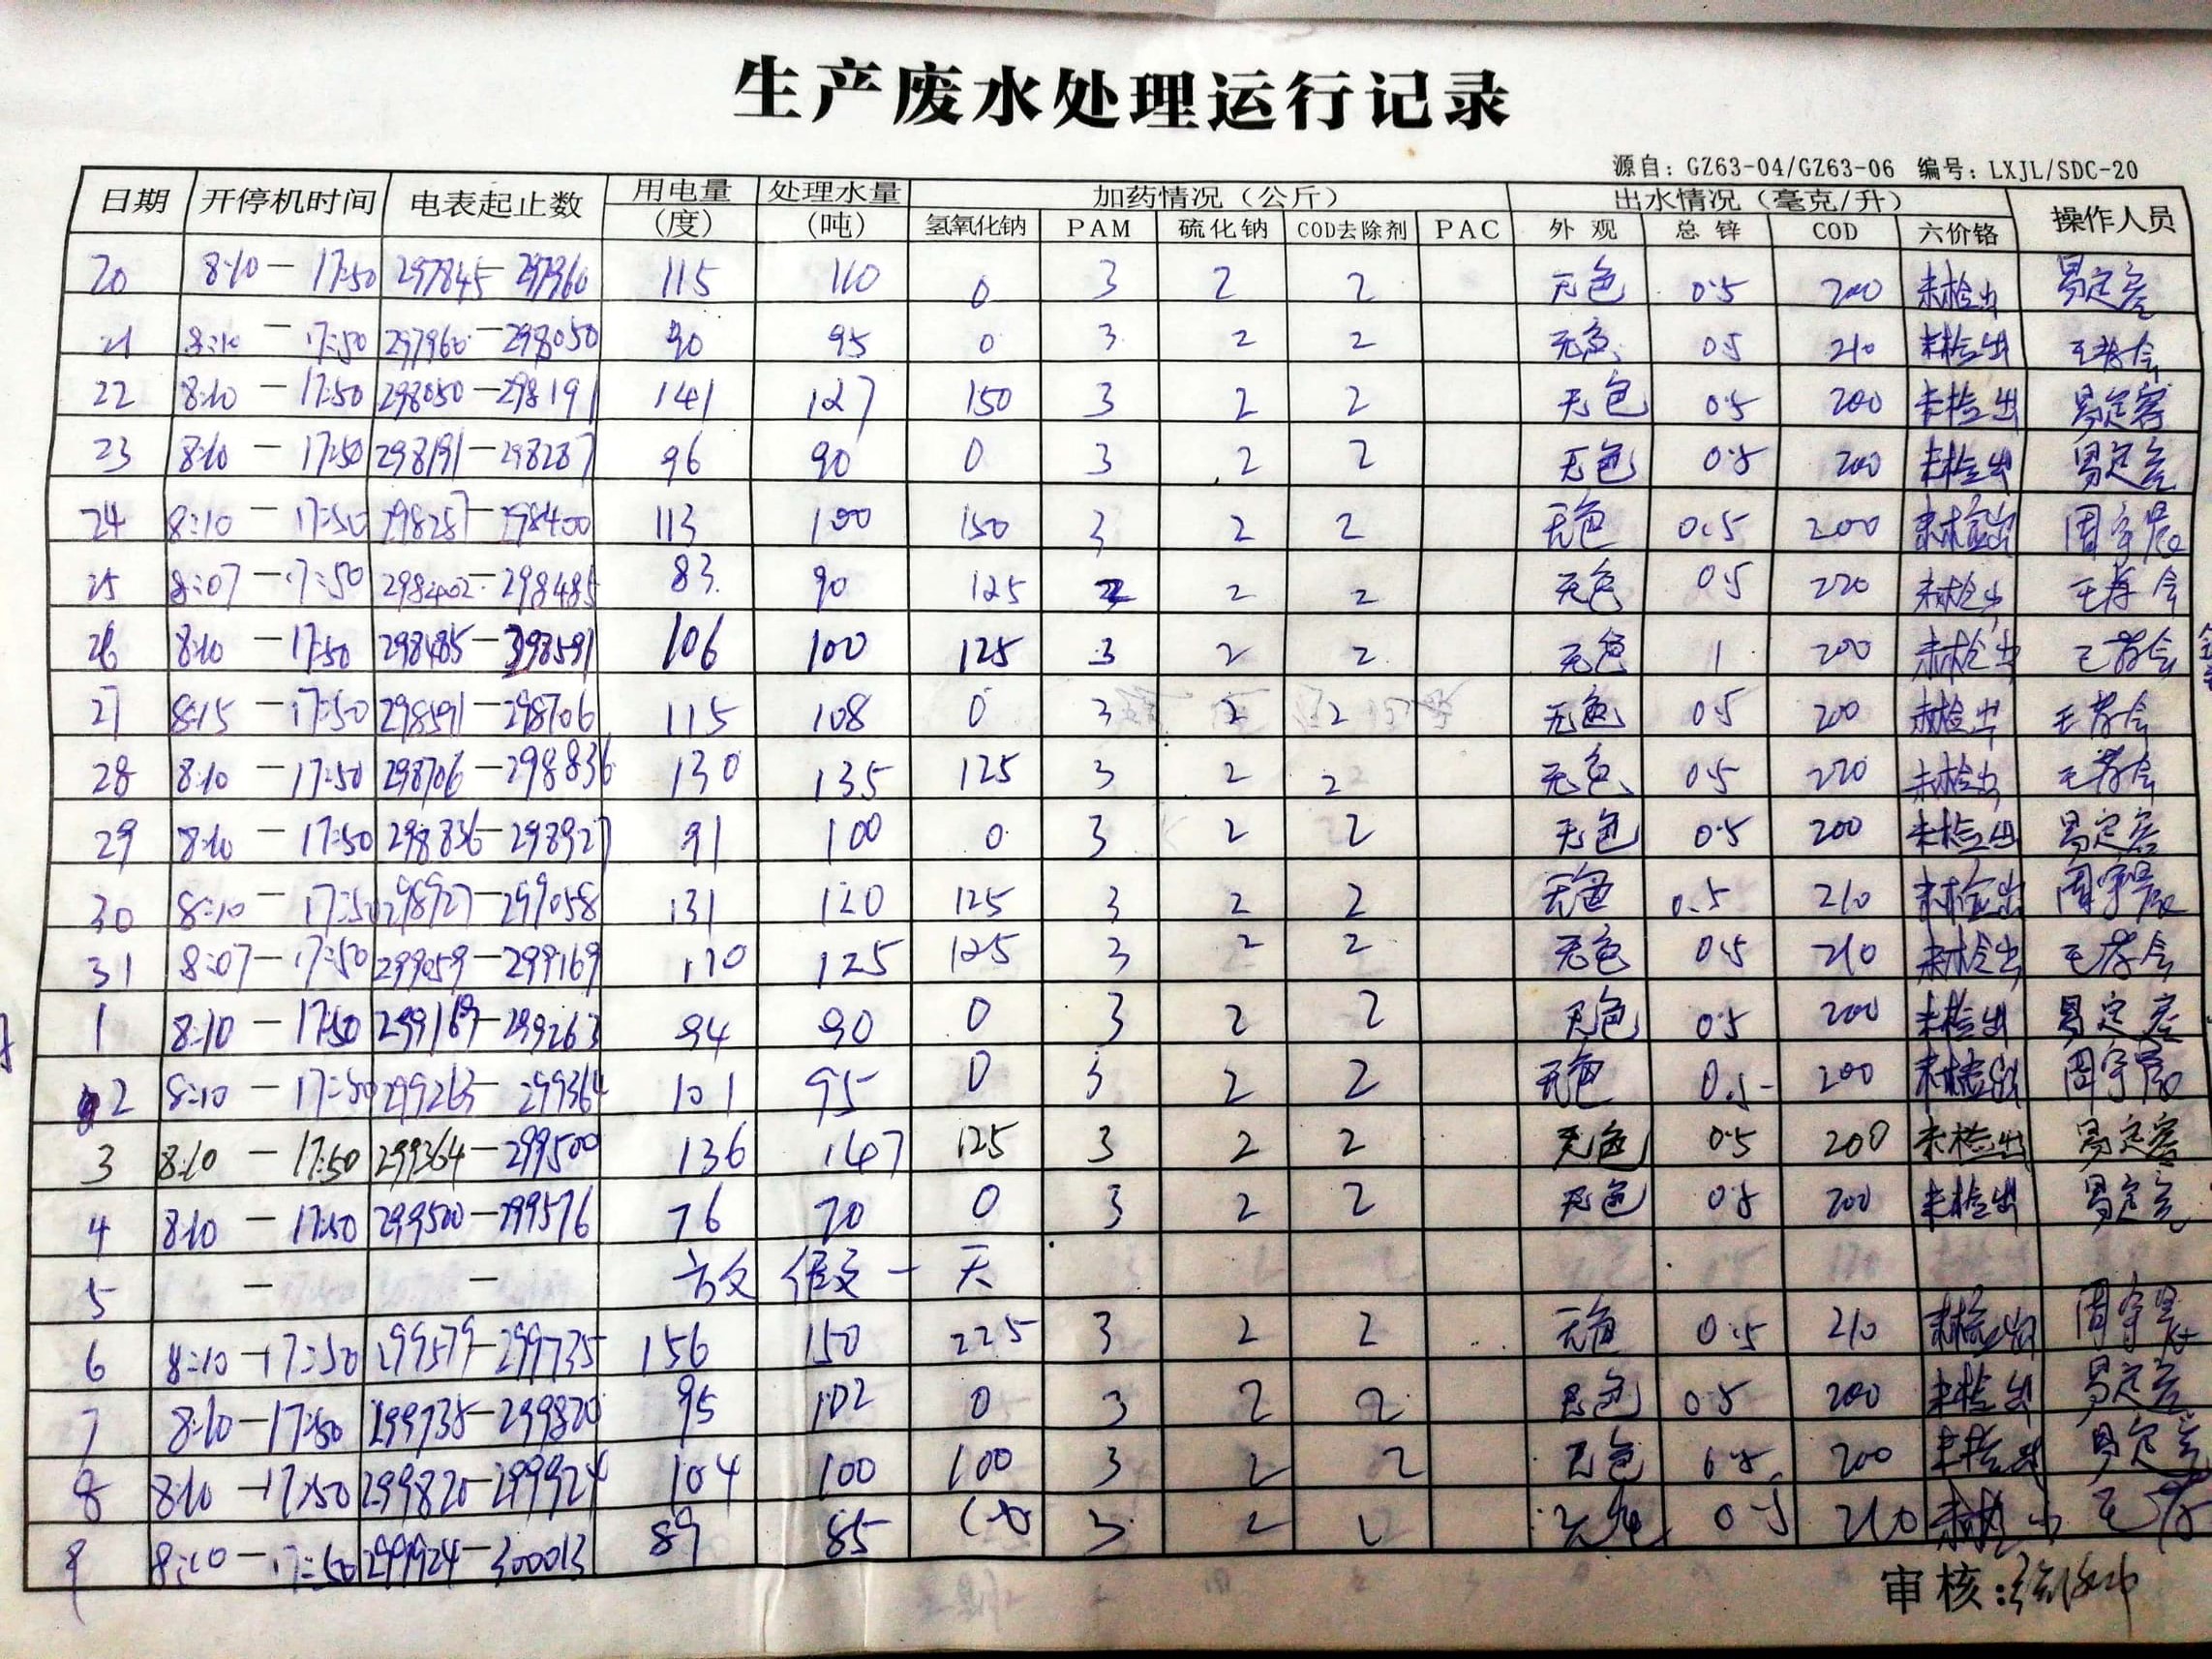 生产废水处理运行记录
源自：GZ63-04/GZ63-06 编号：LXJL/SDC-20
日期 开停机时间 电表起止数 用电量（度） 处理水量（吨） 加药情况（公斤） 出水情况（毫克/升） 操作人员
氢氧化钠 PAM 硫化钠 COD去除剂 PAC 外观 总锌 COD 六价铬
20 8:10－17:50 297845－297960 115 110 0 3 2 2 无色 0.5 200 未检出
21 8:10－17:50 297960－298050 90 95 0 3 2 2 无色 0.5 210 未检出
22 8:10－17:50 298050－298191 141 127 150 3 2 2 无色 0.5 200 未检出
23 8:10－17:50 298191－298287 96 90 0 3 2 2 无色 0.5 200 未检出
24 8:10－17:50 298287－298400 113 100 150 3 2 2 无色 0.5 200 未检出 周宇晨
25 8:07－17:50 298402－298485 83 90 125 2 2 无色 0.5 220 未检出
26 8:10－17:50 298485－298591 106 100 125 3 2 2 无色 1 200 未检出
27 8:15－17:50 298591－298706 115 108 0 3 2 2 无色 0.5 200 未检出
28 8:10－17:50 298706－298836 130 135 125 3 2 2 无色 0.5 220 未检出
29 8:10－17:50 298836－298927 91 100 0 3 2 2 无色 0.5 200 未检出
30 8:10－17:50 298927－299058 131 120 125 3 2 2 无色 0.5 210 未检出 周宇晨
31 8:07－17:50 299059－299169 110 125 125 3 2 2 无色 0.5 210 未检出
1 8:10－17:50 299169－299263 94 90 0 3 2 2 无色 0.5 200 未检出
2 8:10－17:50 299263－299364 101 95 0 3 2 2 无色 0.5 200 未检出 周宇晨
3 8:10－17:50 299364－299500 136 147 125 3 2 2 无色 0.5 200 未检出
4 8:10－17:50 299500－299576 76 70 0 3 2 2 无色 0.5 200 未检出
5 － － 一天
6 8:10－17:50 299579－299735 156 150 225 3 2 2 无色 0.5 210 未检出 周宇晨
7 8:10－17:50 299735－299820 95 102 0 3 2 2 无色 0.5 200 未检出
8 8:10－17:50 299820－299924 104 100 100 3 2 2 无色 0.5 200 未检出
9 8:10－17:50 299924－300013 89 85 3 2 2 无色 0.5 210 未检出
审核：